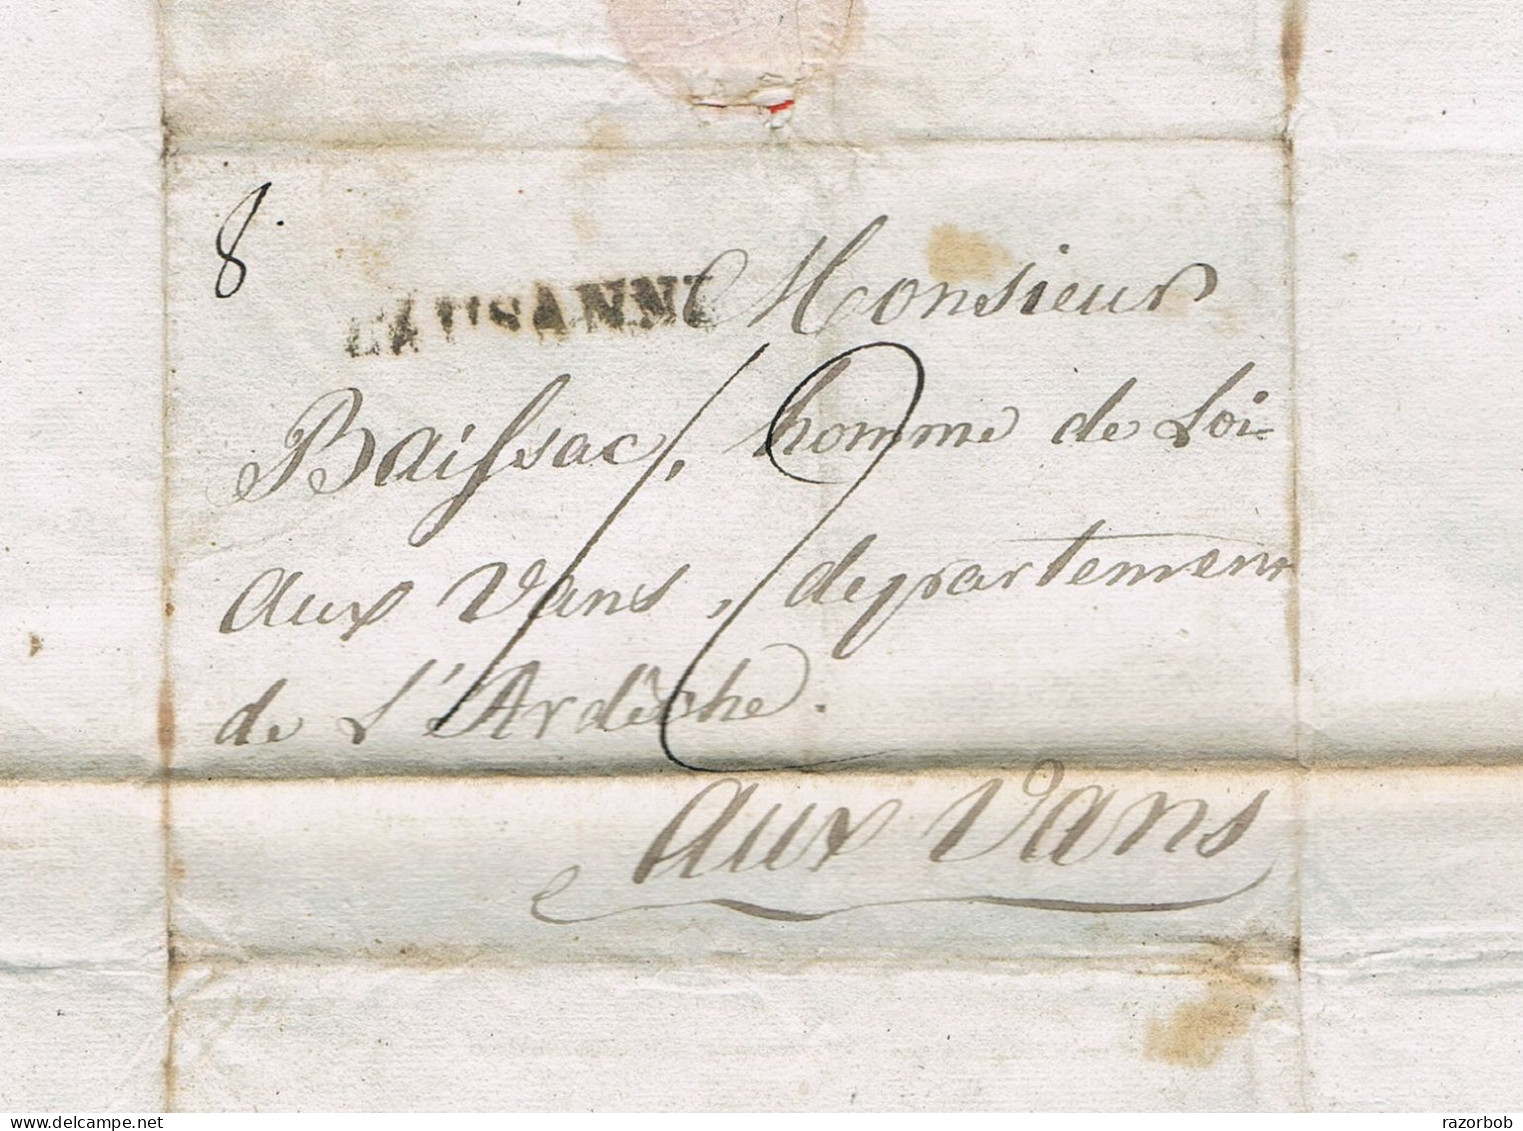 8.
LAUSANNE
Monsieur
Baissac, homme de Loi
aux Vans, département
de L'Ardêche.
aux Vans
delcampe.net
razorbob